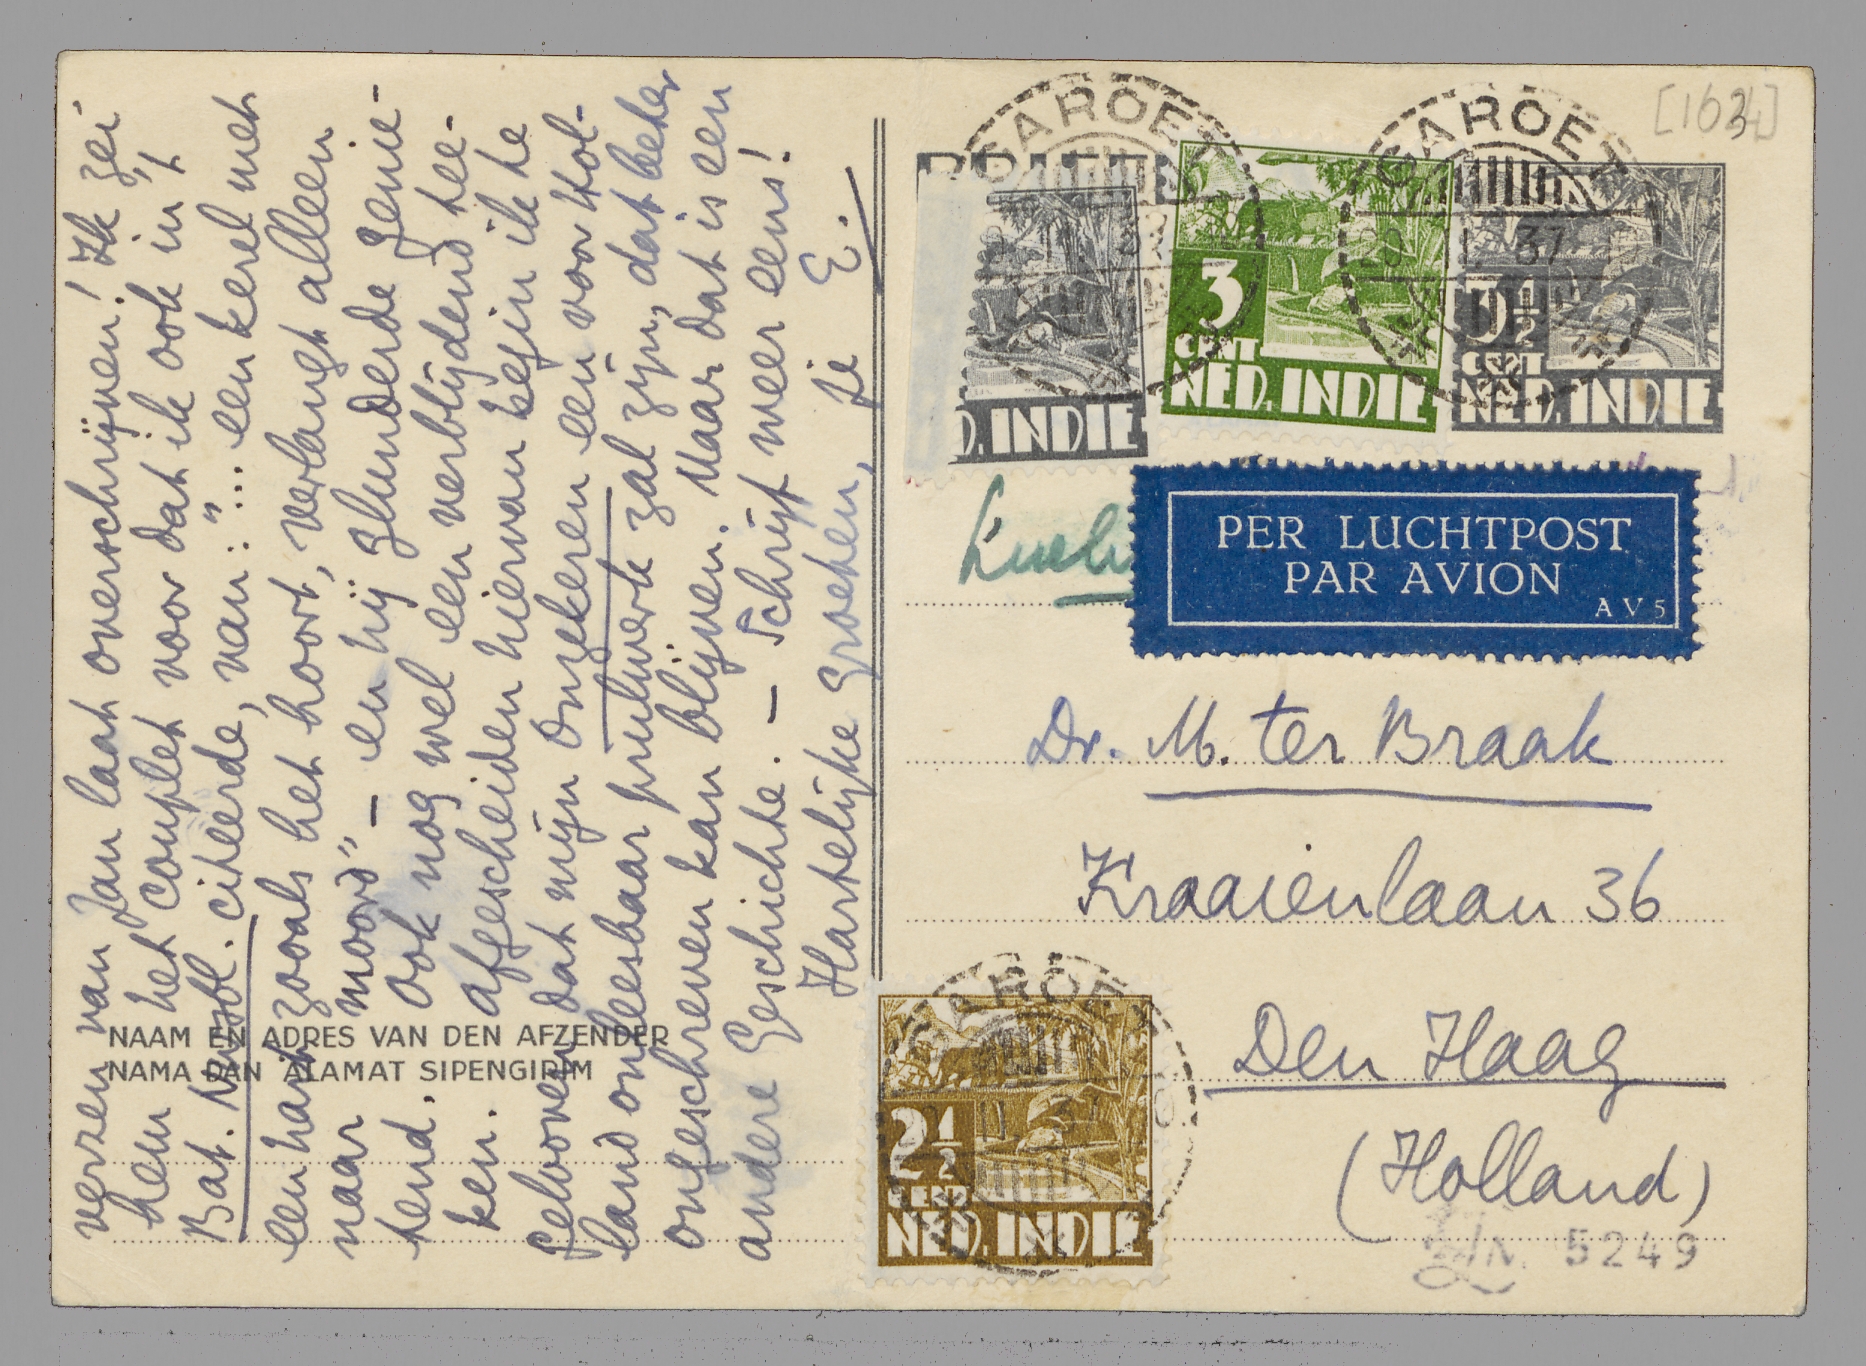 verzen van Jan laat overschrijven! Ik zei
hem het couplet voor dat ik ook in 't
Bat. Nwsbl. citeerde, van: "... een kerel met
een hart zooals het hoort, verlangt alleen
naar moord" — en hij glunderde genie-
tend. Ook nog wel een verblijdend tee-
ken. Afgescheiden hiervan begin ik te
gelooven dat mijn Onzekeren een voor Hol-
land onleesbaar prulwerk zal zijn, dat beter
ongeschreven kan blijven. Maar dat is een
andere Geschichte. — Schrijf weer eens!
Hartelijke groeten, je E.
NAAM EN ADRES VAN DEN AFZENDER
NAMA DAN ALAMAT SIPENGIRIM
[1634]
GAROET
GAROET
37
D. INDIE
3
CENT
NED. INDIE
3½
CENT
NED. INDIE
PER LUCHTPOST
PAR AVION
AV5
Dr. M. ter Braak
Kraaienlaan 36
Den Haag
(Holland)
GAROET
2½
CENT
NED. INDIE
5249